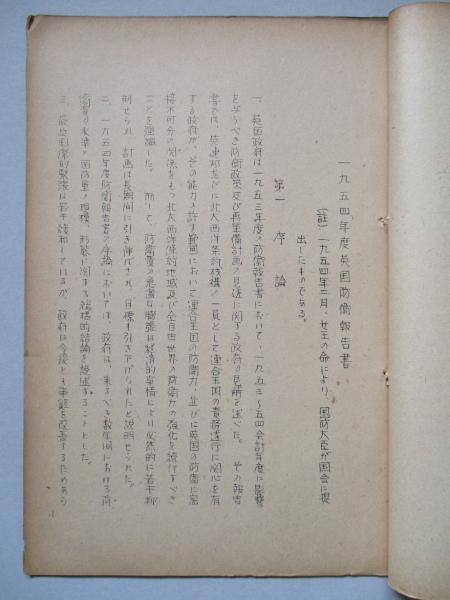 一九五四年度英国防衛報告書
(註) 一九五四年二月、女王の命により、国防大臣が国会に提
出したものである。
第一 序論
一、英国政府は一九五三年度の防衛報告書において、一九五三~五四会計年度に影響
を与うべき防衛政策及び再軍備計画の見透に関する政府の見解を述べた。その報告
書では、英連邦並びに北大西洋条約機構の一員として連合王国の責務遂行に関心を有
する政府が、その能力の許す範囲において連合王国の防衛力、並びに英国の防衛に密
接不可分の関係をもつ北大西洋条約地域及び全自由世界の防衛力の強化を続行すべき
ことを強調した。而して、防衛費の急激な膨張は経済的事情により必然的に若干抑
制せられ、計画は長期間に引き伸ばされ、目標も引き下げられたと説明せられた。
二、一九五四年度防衛報告書の序論においては、政府は、来るべき数年間における
の水準と国防軍の規模、形態に関する総括的結論を提述することとした。
三、国際的緊張は若干緩和しているが、政府は今後とも事態を改善するためあら